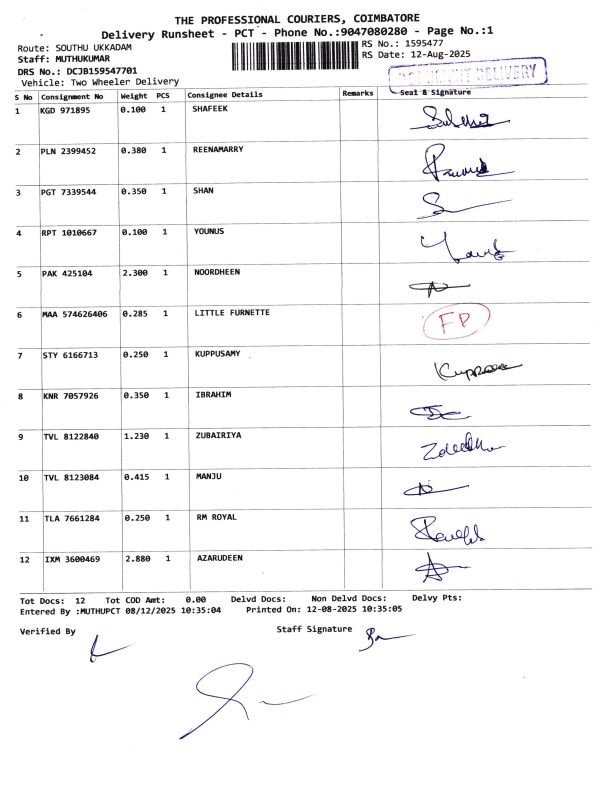 THE PROFESSIONAL COURIERS, COIMBATORE
Delivery Runsheet - PCT - Phone No.:9047080280 - Page No.:1
Route: SOUTHU UKKADAM RS No.: 1595477
Staff: MUTHUKUMAR RS Date: 12-Aug-2025
DRS No.: DCJB159547701
Vehicle: Two Wheeler Delivery
DELIVERY
S No Consignment No Weight PCS Consignee Details Remarks Seal & Signature
1 KGD 971895 0.100 1 SHAFEEK
2 PLN 2399452 0.380 1 REENAMARRY
3 PGT 7339544 0.350 1 SHAN
4 RPT 1010667 0.100 1 YOUNUS
5 PAK 425104 2.300 1 NOORDHEEN
6 MAA 574626406 0.285 1 LITTLE FURNETTE FP
7 STY 6166713 0.250 1 KUPPUSAMY
8 KNR 7057926 0.350 1 IBRAHIM
9 TVL 8122840 1.230 1 ZUBAIRIYA
10 TVL 8123084 0.415 1 MANJU
11 TLA 7661284 0.250 1 RM ROYAL
12 IXM 3600469 2.880 1 AZARUDEEN
Tot Docs: 12 Tot COD Amt: 0.00 Delvd Docs: Non Delvd Docs: Delvy Pts:
Entered By :MUTHUPCT 08/12/2025 10:35:04 Printed On: 12-08-2025 10:35:05
Verified By Staff Signature